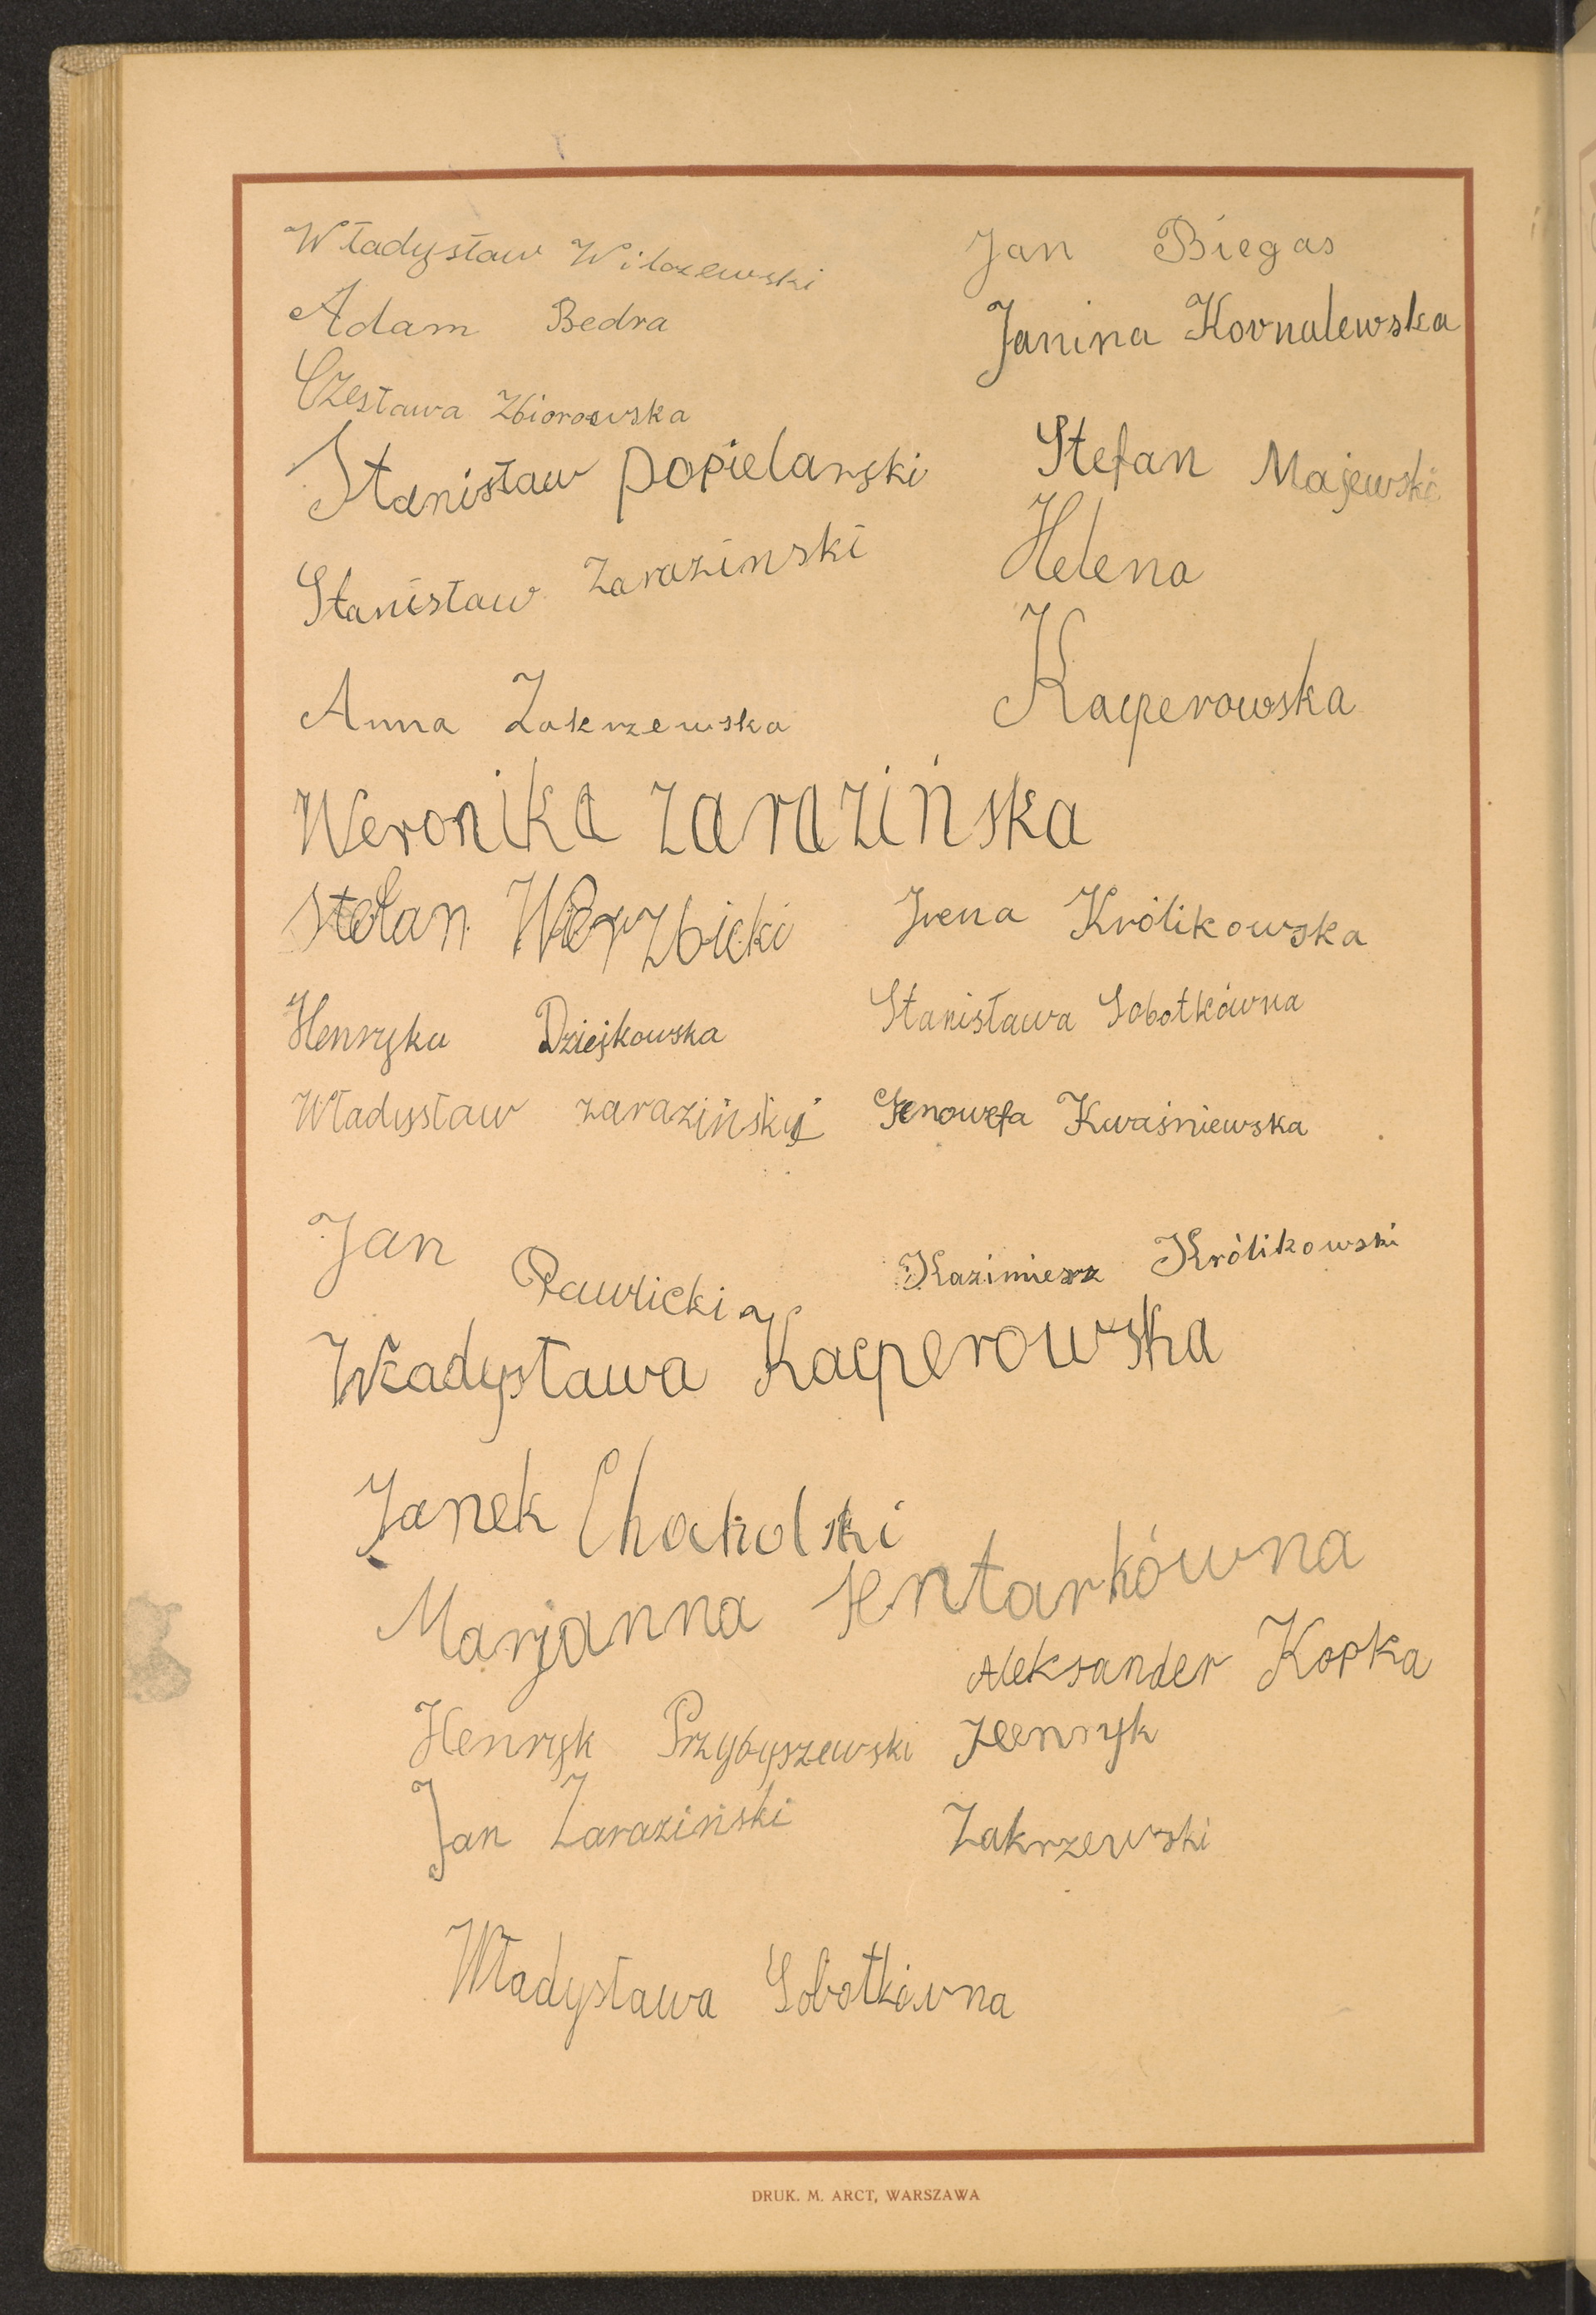 Władysław Wilczewski
Jan Biegas
Adam Bedra
Janina Kovnalewska
Czesława Zbiorowska
Stanisław Popielarski
Stefan Majewski
Stanisław Zarazinski
Helena
Kacperowska
Anna Zakrzewska
Weronika Zarazińska
Stefan Wierzbicki
Irena Królikowska
Henryka Dziejkowska
Stanisława Sobotkówna
Władysław Zaraziński
Genowefa Kwaśniewska
Jan Pawlicki
Kazimierz Królikowski
Władysława Kacperowska
Janek Chacholski
Marjanna Jentarkówna
Aleksander Kopka
Henryk Przybyszewski
Henryk
Zakrzewski
Jan Zaraziński
Władysława Sobotkówna
DRUK. M. ARCT, WARSZAWA